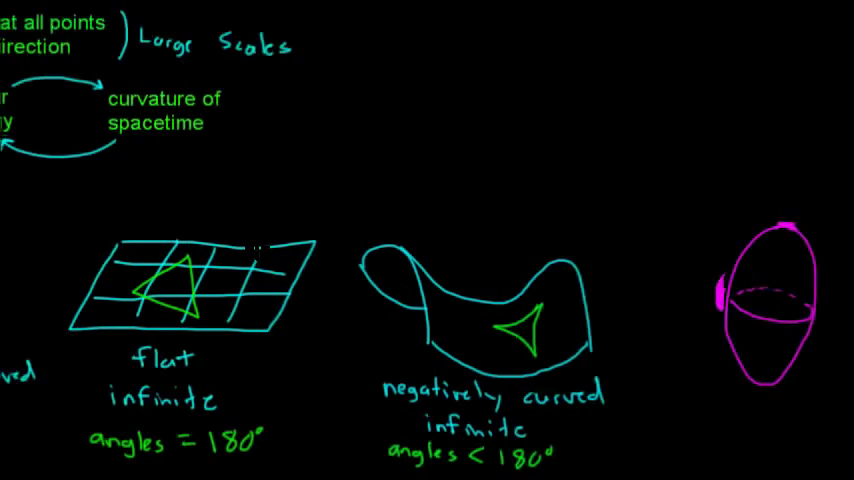 at all points
irection
Large Scales
r
gy
curvature of
spacetime
ved
flat
infinite
angles = 180°
negatively curved
infinite
angles < 180°